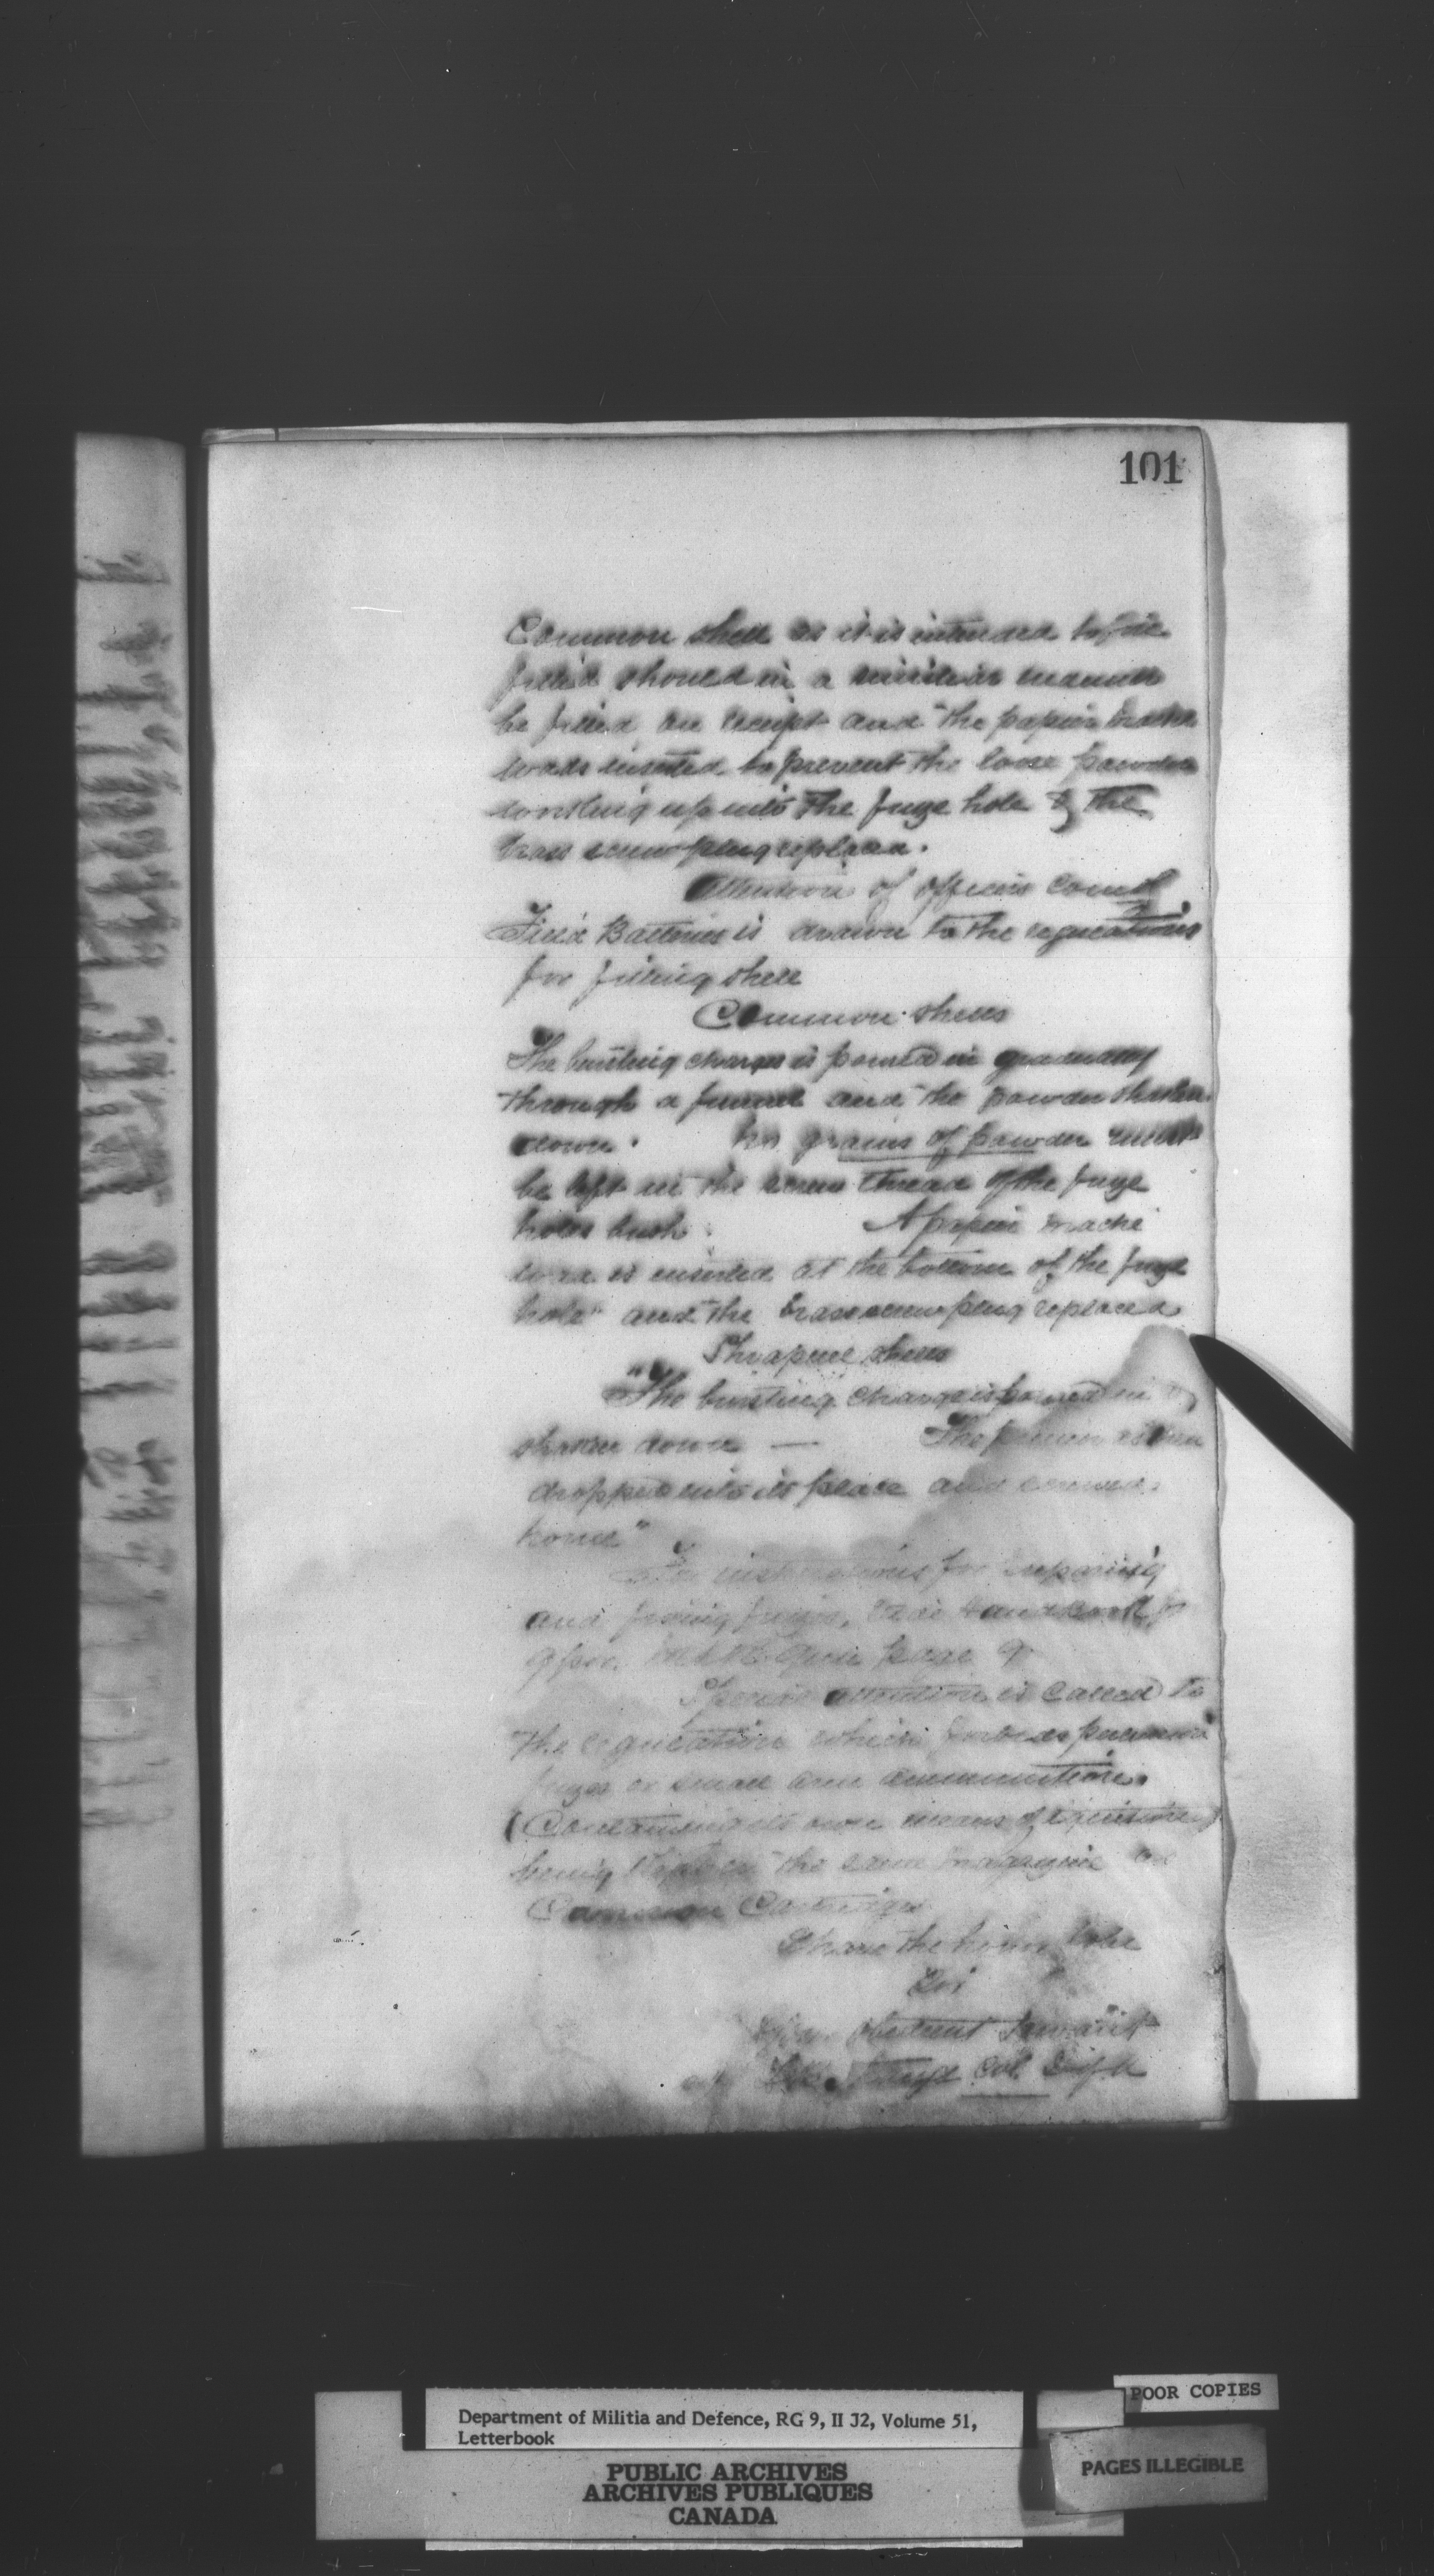 101
Common shell as it is intended to be
filled should in a similar manner
be filled on receipt and the papier mache
wads inserted to prevent the loose powder
working up into the fuze hole & the
brass screw plug replaced.
Attention of officers comdg
Field Batteries is drawn to the regulations
for filling shell
Common shells
The bursting charge is poured in gradually
through a funnel and the powder shaken
down. No grains of powder must
be left in the screw thread of the fuze
holes bush A papier mache
wad is inserted at the bottom of the fuze
hole" and the brass screw plug replaced
Shrapnel shells
"The bursting charge is poured in &
shaken down — The primer is then
dropped into its place and screwed
home"
For instructions for preparing
and fixing fuzes, vide Handbook for
9 pr. M.L.R. Gun page 9
Special attention is called to
the regulation which forbids
fuzes or small arm ammunition
(Containing its own means of ignition)
being kept in the same magazine as
Common Cartridges
I have the honor to be
Sir
Your obedient Servant
Col.
Department of Militia and Defence, RG 9, II J2, Volume 51,
Letterbook
PUBLIC ARCHIVES
ARCHIVES PUBLIQUES
CANADA
POOR COPIES
PAGES ILLEGIBLE